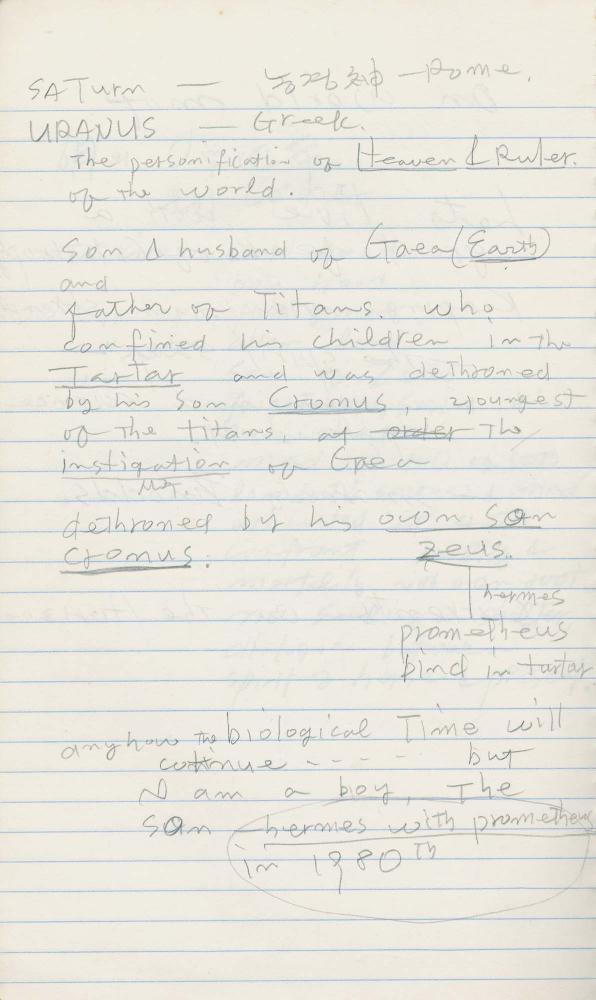 SATurn — 농경神 — Rome.
URANUS — Greek.
The personification of Heaven & Ruler.
of the world.
Son & husband of Gaea (Earth)
and
father of Titans. who
confined his children in the
Tartar and was dethroned
by his son Cronus, youngest
of the titans. at order The
instigation of Gaea
dethroned by his own son
cronus. zeus.
hermes
prometheus
bind in tartar
anyhow the biological Time will
cotinue - - - - but
I am a boy, The
son hermes with prometheus
in 1980th